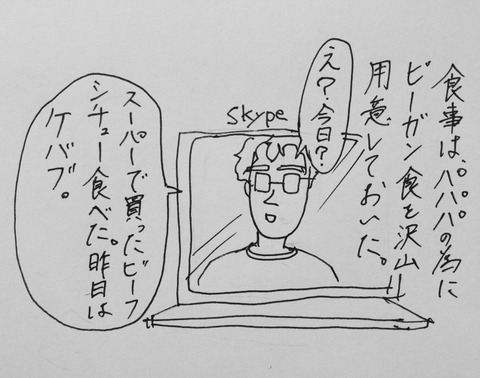 食事は、パパの為に
ビーガン食を沢山
用意しておいた。
え？今日？
Skype
スーパーで買ったビーフ
シチュー食べた。昨日は
ケバブ。